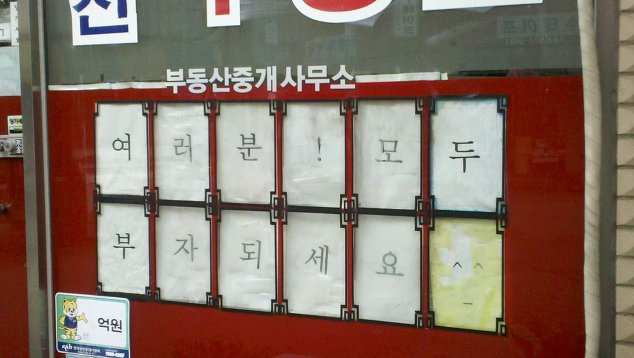 진
부동산중개사무소
여러분!모두
부자되세요^_^
억원